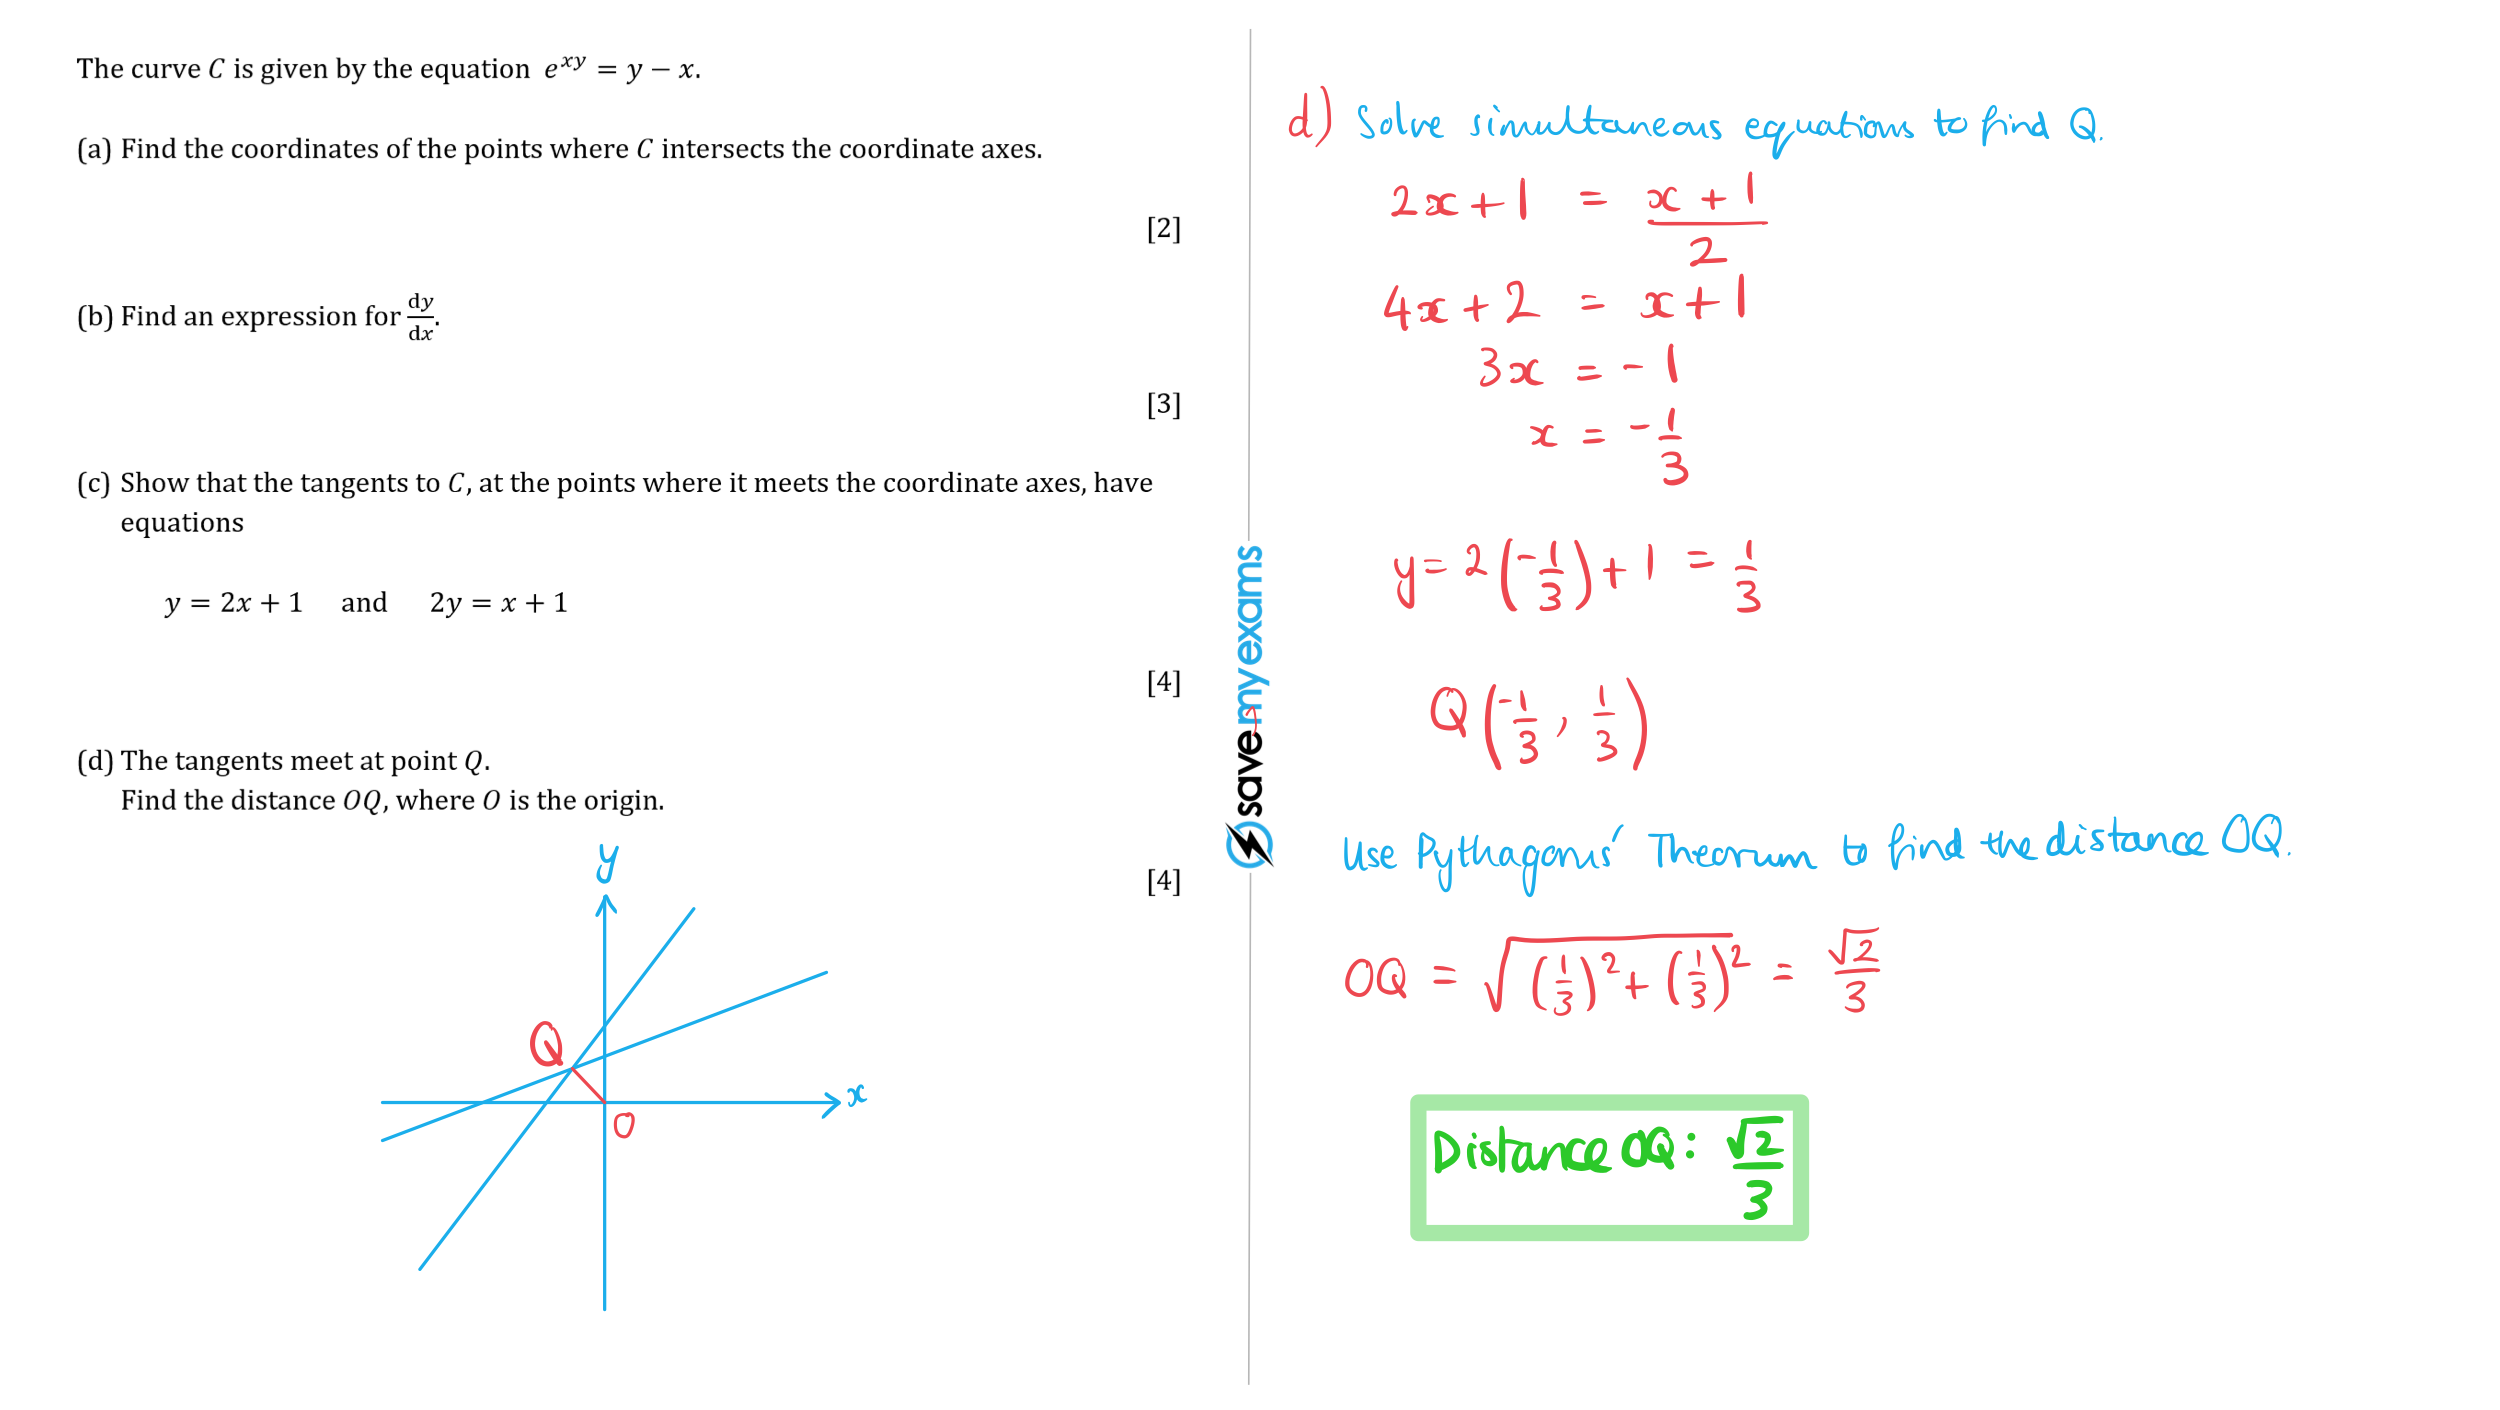 The curve C is given by the equation e^{xy} = y − x.
(a) Find the coordinates of the points where C intersects the coordinate axes.
[2]
(b) Find an expression for dy/dx.
[3]
(c) Show that the tangents to C, at the points where it meets the coordinate axes, have
equations
y = 2x + 1 and 2y = x + 1
[4]
(d) The tangents meet at point Q.
Find the distance OQ, where O is the origin.
[4]
y
Q
x
O
save my exams
d) Solve simultaneous equations to find Q.
2x + 1 = (x + 1)/2
4x + 2 = x + 1
3x = - 1
x = - 1/3
y = 2(-1/3) + 1 = 1/3
Q(-1/3, 1/3)
Use Pythagoras' Theorem to find the distance OQ.
OQ = √((1/3)² + (1/3)²) = √2/3
Distance OQ: √2/3